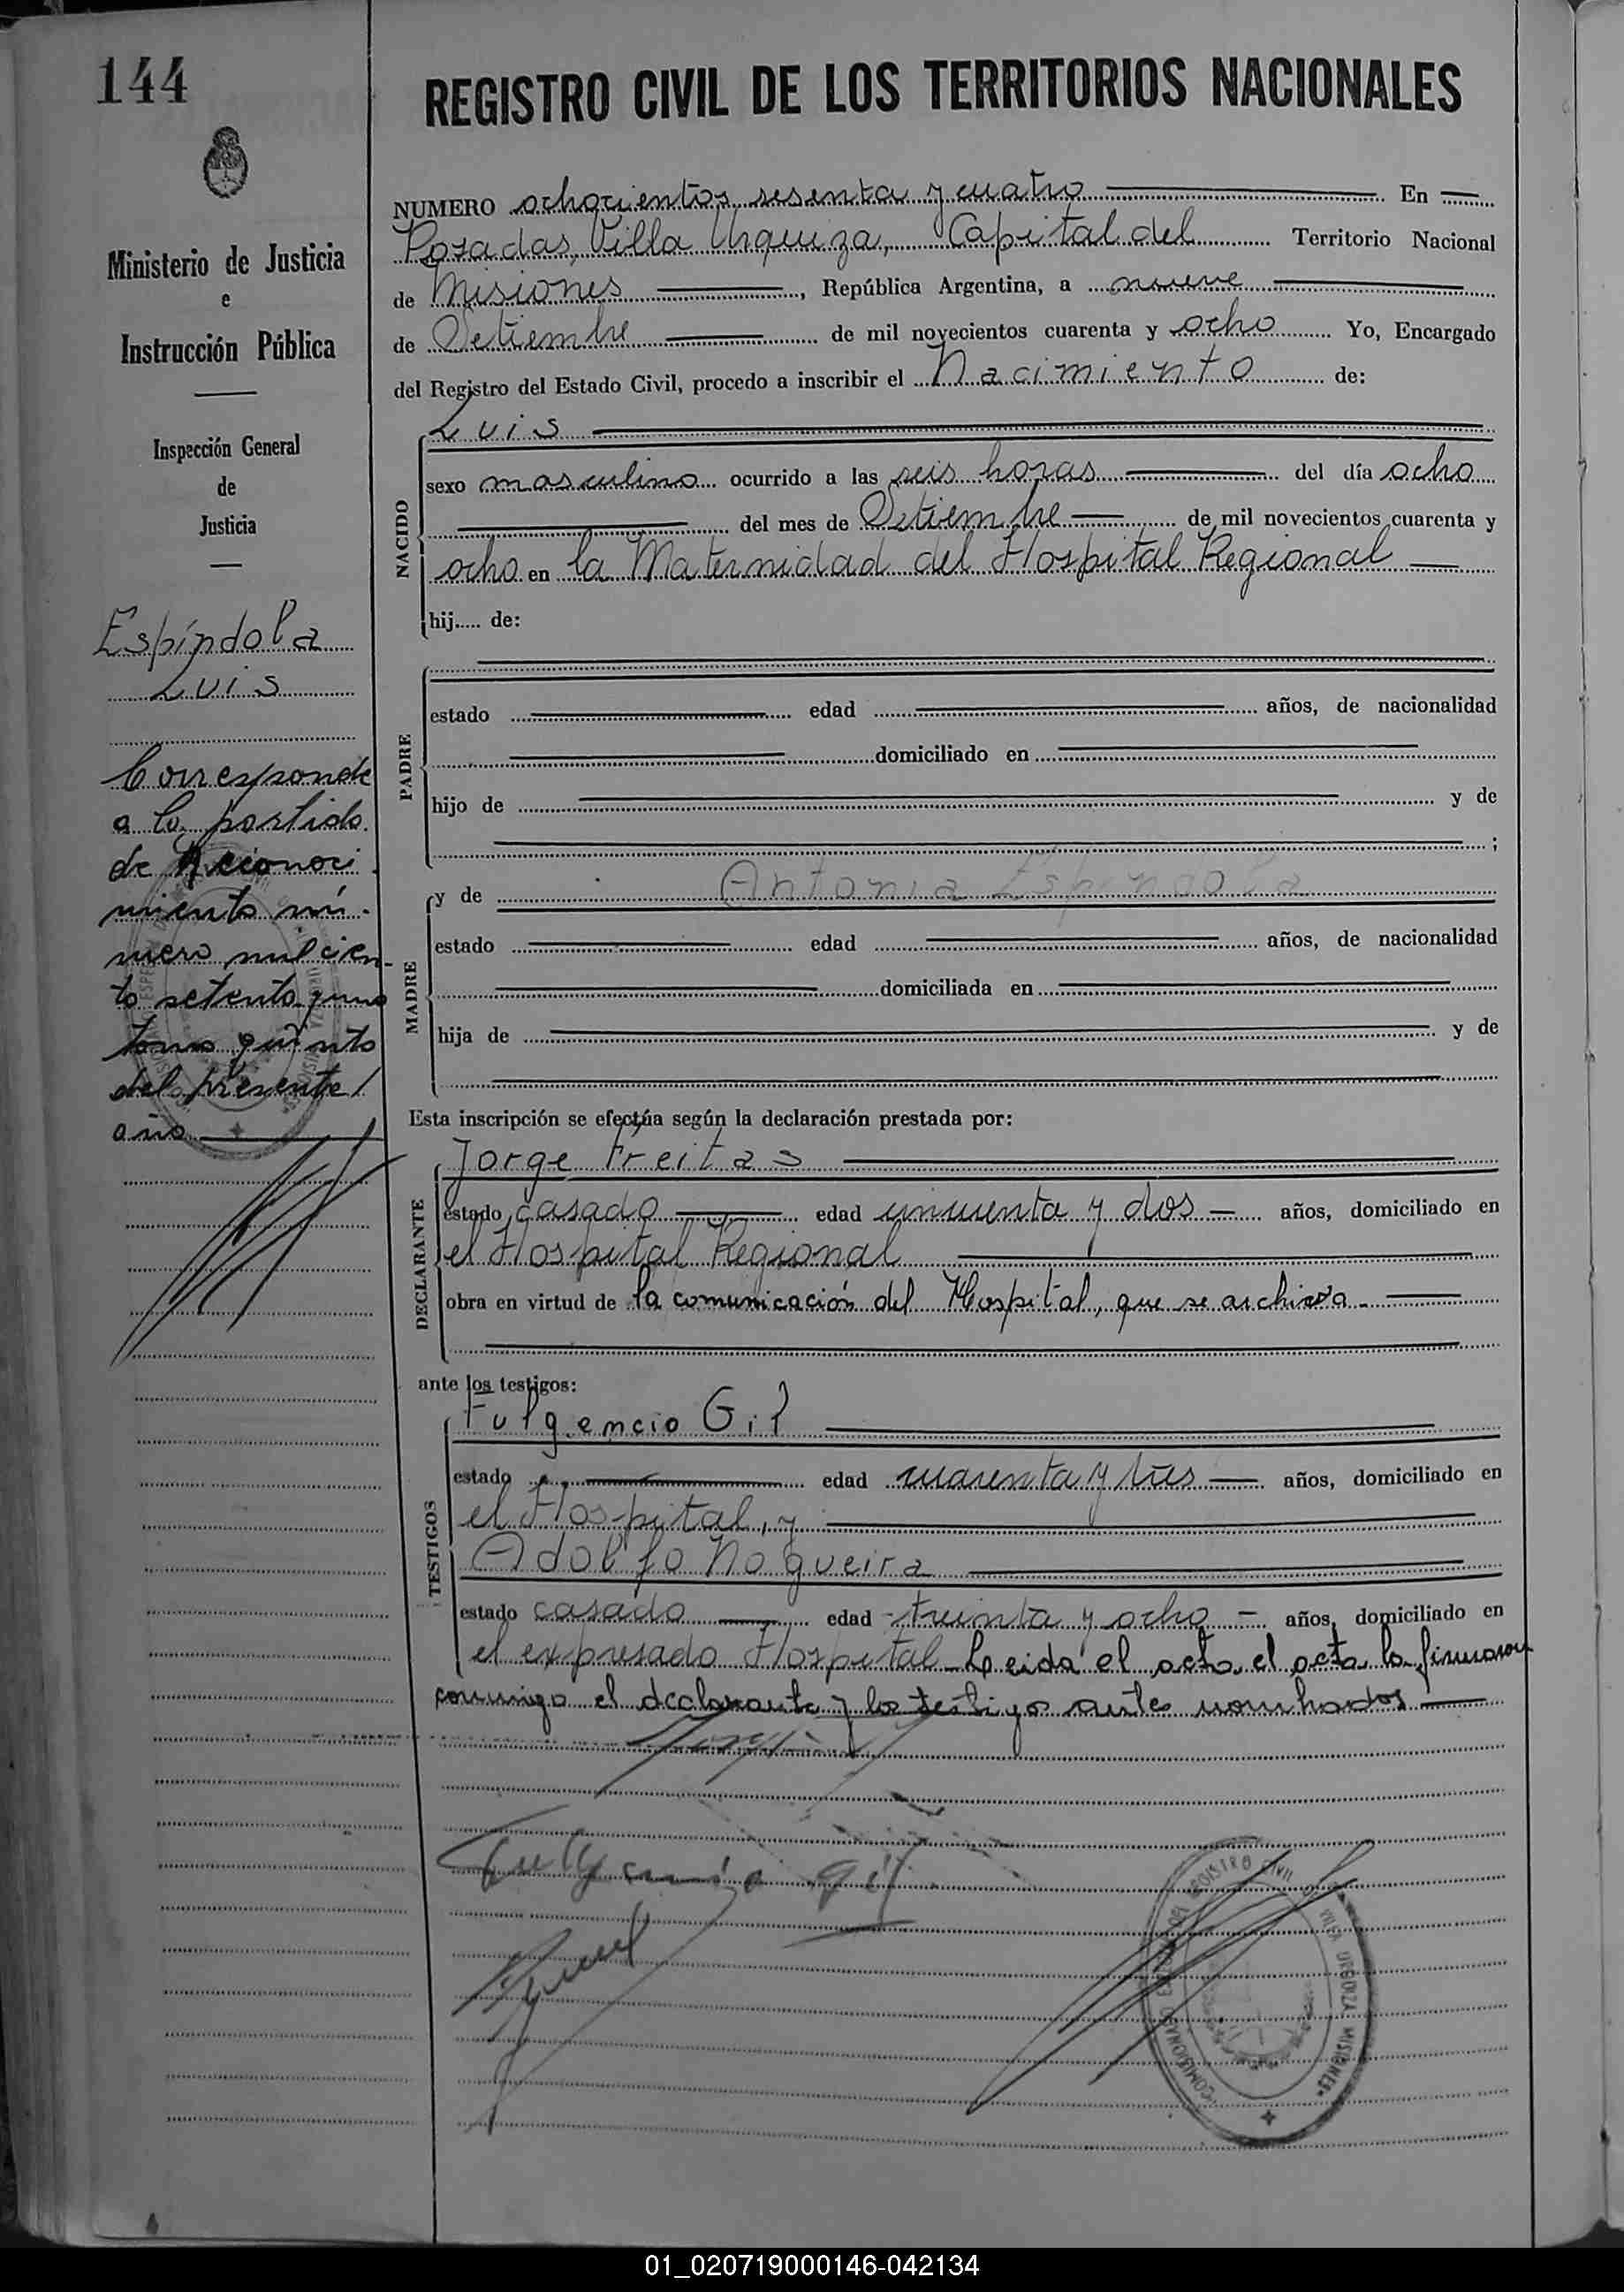 144
REGISTRO CIVIL DE LOS TERRITORIOS NACIONALES
Ministerio de Justicia
e
Instrucción Pública
Inspección General
de
Justicia
Espíndola
Luis
Corresponde
a la partida
de Reconoci
miento nú-
mero mil cien-
to setenta y uno
tomo quinto
del presente
año
NUMERO ochocientos sesenta y cuatro En
Posadas, Villa Urquiza, Capital del Territorio Nacional
de Misiones, República Argentina, a nueve
de Setiembre de mil novecientos cuarenta y ocho Yo, Encargado
del Registro del Estado Civil, procedo a inscribir el Nacimiento de:
NACIDO
Luis
sexo masculino ocurrido a las seis horas del día ocho
del mes de Setiembre de mil novecientos cuarenta y
ocho en la Maternidad del Hospital Regional
hij..... de:
PADRE
estado edad años, de nacionalidad
domiciliado en
hijo de y de
;
MADRE
y de Antonia Espindola
estado edad años, de nacionalidad
domiciliada en
hija de y de
Esta inscripción se efectúa según la declaración prestada por:
DECLARANTE
Jorge Freitas
estado casado edad cincuenta y dos años, domiciliado en
el Hospital Regional
obra en virtud de la comunicación del Hospital, que se archiva.
ante los testigos:
TESTIGOS
Fulgencio Gil
estado edad cuarenta y tres años, domiciliado en
el Hospital, y
Adolfo Nogueira
estado casado edad treinta y ocho años, domiciliado en
el expresado Hospital. Leida el acta, el acta la firmaron
conmigo el declarante y los testigos antes nombrados
Fulgencio Gil
REGISTRO CIVIL
VILLA URQUIZA MISIONES
COMISIONADO
01_020719000146-042134